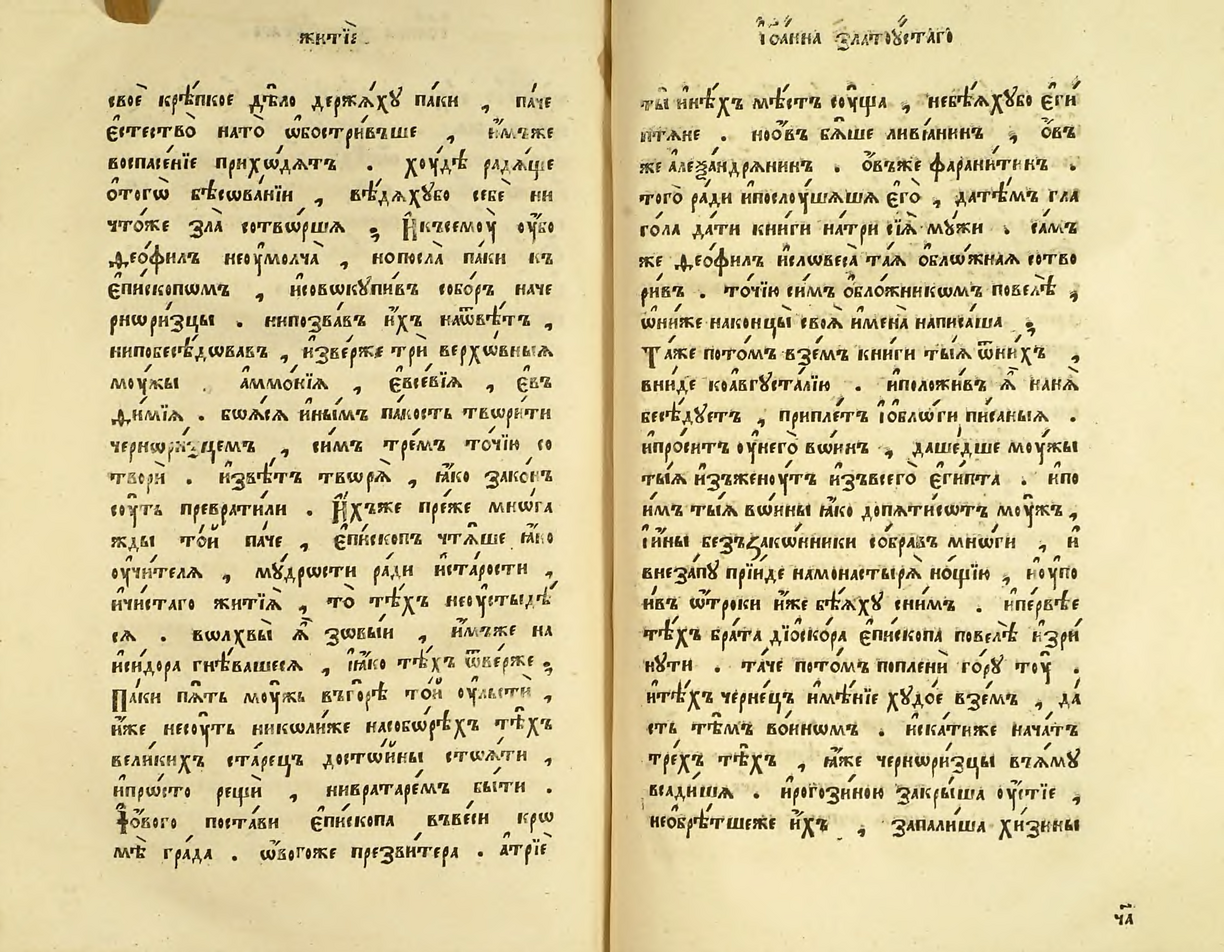 житїѐ
своѐ крѣ́пкое дѣ́ло держа́хꙋ па́ки , па́че
є҆стество̀ нато̀ ѡ҆бостри́въше , и҆́мъже
воспасе́нїе прихѡ́дѧтъ . хꙋ́дѣ радѧ́ще
ѻ҆тогѡ̀ бѣсова́нїи , вѣ́дѧхꙋбо себѐ ни
что́же зла̀ сотвѡ́ршѧ ; И҆ксемꙋ̀ ᲂу҆бо
Ѳео́филъ неᲂу҆молча̀ , нопосла̀ па́ки къ
є҆пи́скопѡмъ , и҆совѡкꙋпи́въ собо́ръ наче
рнѡри́зцы . нипозва́въ и҆́хъ наѿвѣ́тъ ,
нипобесѣ́довавъ , и҆зве́рже трѝ верхѡ́вныѧ
мꙋ́жы . а҆ммо́нїѧ , є҆ѵсе́вїѧ , є҆ѵъ
ѳи́мїѧ . боѧ́сѧ и҆ны́мъ па́кость твѡри́ти
чернѡрѧ́зцемъ , си́мъ тре́мъ то́чїю со
творѝ . и҆звѣ́тъ твѡрѧ̀ , ꙗ҆́ко зако́нъ
сꙋ́ть преврати́ли . И҆́хъже пре́же мнѡ́га
жды то́й па́че , є҆пи́скопъ чтѧ́ше ꙗ҆́ко
ᲂу҆чи́телѧ , мꙋ́дрѡсти ра́ди и҆ста́рости ,
и҆чи́стаго житїѧ̀ , то̀ тѣ́хъ неᲂу҆стыдѣ́
сѧ . вѡлхвы̀ ѧ҆̀ зовы́й , и҆́мъже на
и҆си́дора гнѣ́вашесѧ , ꙗ҆́ко тѣ́хъ ѿве́рже ;
Па́ки пѧ́ть мꙋ́жь въгорѣ̀ то́й ᲂу҆льстѝ ,
и҆́же несꙋ́ть николи́же насобѡ́рѣхъ тѣ́хъ
вели́кихъ ста́рецъ досто́йны стѡѧ́ти ,
и҆про́сто рещѝ , нивратаре́мъ бы́ти .
І҆ѻ҆́вого поста́ви є҆пи́скопа въве́си кро
мѣ̀ гра́да . ѡ҆́вогоже презви́тера . а҆трїѐ
І҆ѡа́нна Златоꙋ́стаго
ты̀ и҆нѣ́хъ мѣ́стъ сꙋ́ща , небѣ́ѧхꙋбо є҆ги́
птѧне . ноѻ҆́въ бѧ́ше ливїа́нинъ , ѻ҆́въ
же а҆леѯандрѧ́нинъ . ѻ҆́въже фарани́тинъ .
того̀ ра́ди и҆послꙋ́шѧшѧ є҆го̀ , датѣ́мъ гла
го́ла да́ти кни́ги натрѝ сїѧ̀ мꙋ́жи . са́мъ
же Ѳео́филъ и҆словеса̀ та́ѧ ѻ҆блѡ́жнаѧ сотво
ри́въ . то́чїю си́мъ ѻ҆бло́жникѡмъ повелѣ̀ ;
ѡ҆ни́же наконцы̀ своѧ̀ и҆мена̀ написа́ша ;
Та́же пото́мъ взе́мъ кни́ги ты́ѧ ѿни́хъ ,
вни́де коа҆вгꙋста́лїю . и҆положи́въ ѧ҆̀ нанѧ̀
бесѣ́дꙋетъ , припле́тъ і҆ѻ҆блѡ́ги пи́саныѧ .
и҆про́ситъ ᲂу҆него̀ вѡ́инъ , даше́дше мꙋ́жы
ты́ѧ и҆зъженꙋ́тъ и҆зъвсего̀ є҆ги́пта . и҆по
и҆́мъ ты́ѧ вѡ́ины ꙗ҆́ко допѧтисѡ́тъ мꙋ́жъ ,
і҆и҆́ны беззако́нники собра́въ мнѡ́ги , и҆
внеза́пꙋ прїи́де намонастырѧ̀ но́щїю , и҆ᲂу҆по
и҆́въ ѿ́роки и҆́же бѣ́ѧхꙋ сни́мъ . и҆пе́рвѣе
тѣ́хъ бра́та дїѡ́скора є҆пи́скопа повелѣ̀ и҆зри́
нꙋти . та́че пото́мъ поплени́ го́рꙋ тꙋ̀ .
и҆тѣ́хъ черне́цъ и҆мѣ́нїе хꙋдо́е взе́мъ , да́
сть тѣ́мъ во́инѡмъ . и҆ска́тиже нача́тъ
тре́хъ тѣ́хъ , ꙗ҆́же чернѡри́зцы въѧ́мꙋ
всади́шѧ . и҆рого́зиною закры́ша ᲂу҆́стїе ,
необрѣ́тшеже и҆́хъ , запали́ша хи́зины
ча҃